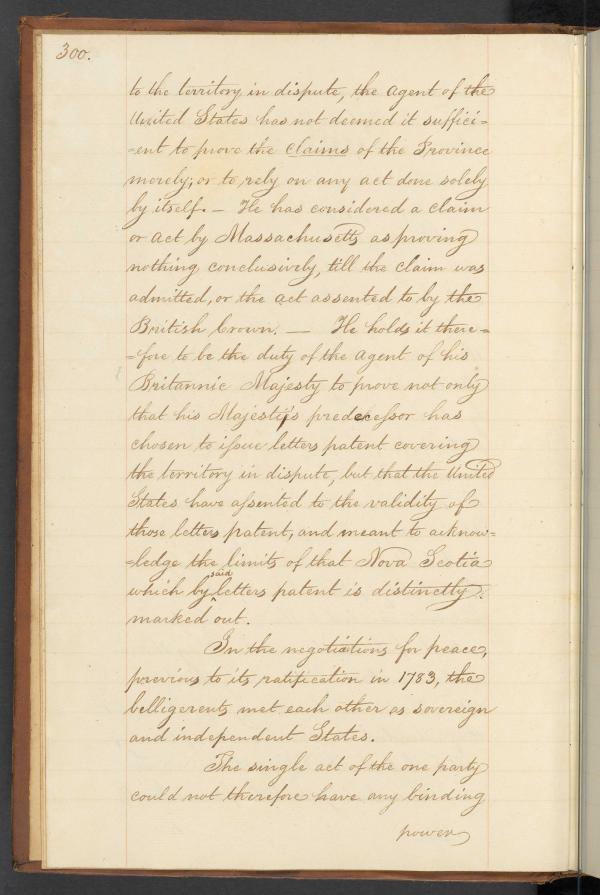 300.
to the territory in dispute, the agent of the
United States has not deemed it suffici=
=ent to prove the claims of the Province
merely; or to rely on any act done solely
by itself. — He has considered a claim
or act by Massachusetts as proving
nothing conclusively, till the claim was
admitted, or the act assented to by the
British Crown. — He holds it there=
=fore to be the duty of the agent of his
Britannic Majesty to prove not only
that his Majesty's predecessor has
chosen to issue letters patent covering
the territory in dispute, but that the United
States have assented to the validity of
those letters patent, and meant to acknow=
=ledge the limits of that Nova Scotia
said
which by letters patent is distinctly
marked out.
In the negotiations for peace,
previous to its ratification in 1783, the
belligerents met each other as sovereign
and independent States.
The single act of the one party
could not therefore have any binding
power